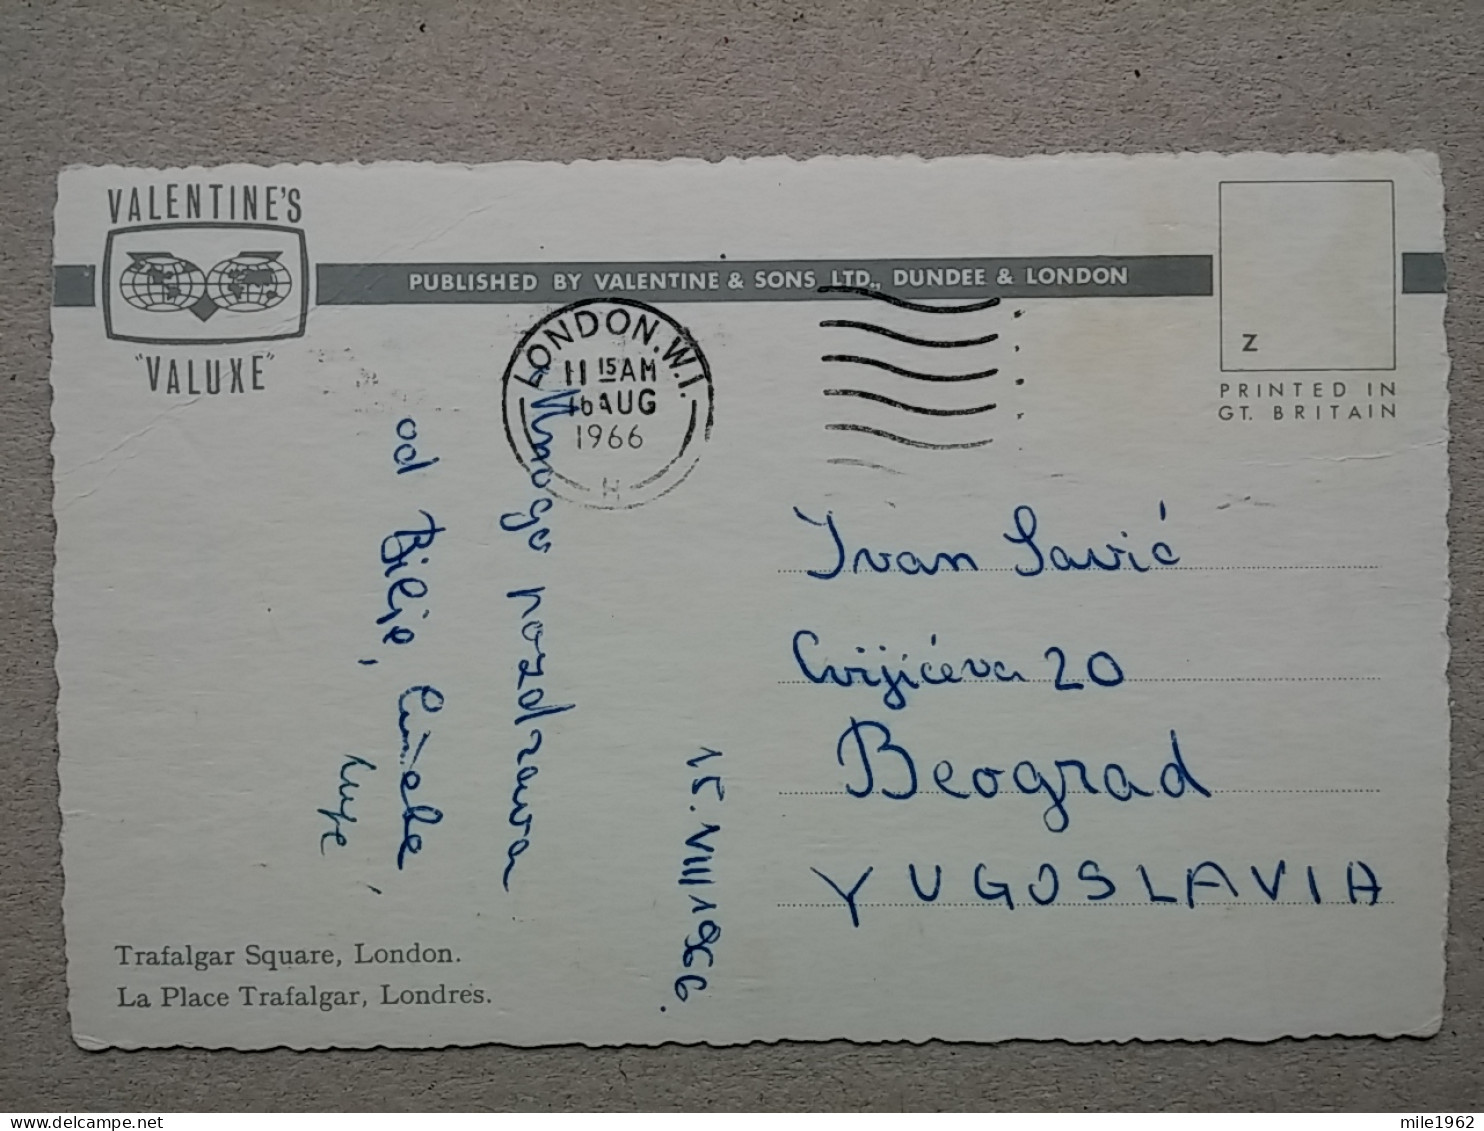 VALENTINE'S
"VALUXE"
PUBLISHED BY VALENTINE & SONS LTD., DUNDEE & LONDON
Z
PRINTED IN
GT. BRITAIN
LONDON. W.1.
11 15 AM
16 AUG
1966
H
Mnogo pozdrava
od Bilje,
15. VIII 1966.
Ivan Savić
Cvijićeva 20
Beograd
YUGOSLAVIA
Trafalgar Square, London.
La Place Trafalgar, Londres.
mile1962